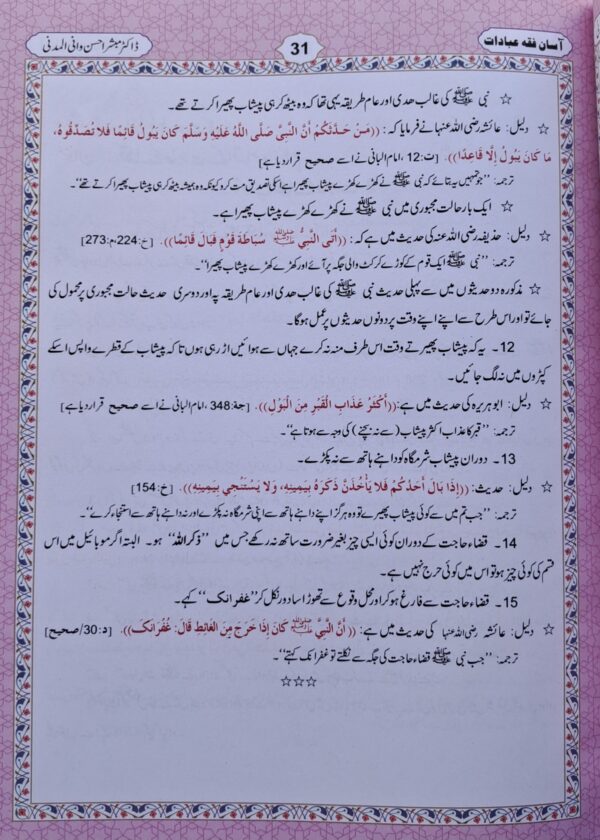 آسان فقہ عبادات
31
ڈاکٹر مبشر احسن وانی المدنی
☆ نبی ﷺ کی غالب ھدی اور عام طریقہ یہی تھا کہ وہ بیٹھ کر ہی پیشاب پھیرا کرتے تھے۔
☆ دلیل: عائشہ رضی اللہ عنہا نے فرمایا کہ: ((مَنْ حَدَّثَكُمْ أَنَّ النَّبِيَّ صَلَّى اللَّهُ عَلَيْهِ وَسَلَّمَ كَانَ يَبُولُ قَائِمًا فَلَا تُصَدِّقُوهُ،
مَا كَانَ يَبُولُ إِلَّا قَاعِدًا)). [ت:12 ،امام البانی نے اسے صحیح قرار دیا ہے]
ترجمہ: ”جو تمہیں یہ بتائے کہ نبی ﷺ نے کھڑے کھڑے پیشاب پھیرا ہے اسکی تصدیق مت کرو کیونکہ وہ ہمیشہ بیٹھ کر ہی پیشاب پھیرا کرتے تھے“۔
☆ ایک بار حالت مجبوری میں نبی ﷺ نے کھڑے کھڑے پیشاب پھیرا ہے۔
☆ دلیل: حذیفہ رضی اللہ عنہ کی حدیث میں ہے کہ: ((أَتَى النَّبِيُّ ﷺ سُبَاطَةَ قَوْمٍ فَبَالَ قَائِمًا)). [خ:224،م:273]
ترجمہ: ”نبی ﷺ ایک قوم کے کوڑے کرکٹ والی جگہ پر آئے اور کھڑے کھڑے پیشاب پھیرا“۔
☆ مذکورہ دو حدیثوں میں سے پہلی حدیث نبی ﷺ کی غالب ھدی اور عام طریقہ پہ اور دوسری حدیث حالت مجبوری پر محمول کی
جائے تو اور اس طرح سے اپنے اپنے وقت پر دونوں حدیثوں پر عمل ہوگا۔
12۔ یہ کہ پیشاب پھیرتے وقت اس طرف منہ نہ کرے جہاں سے ہوائیں اڑ رہی ہوں تاکہ پیشاب کے قطرے واپس اسکے
کپڑوں میں نہ لگ جائیں۔
☆ دلیل: ابو ہریرہ کی حدیث میں ہے: ((أَكْثَرُ عَذَابِ الْقَبْرِ مِنَ الْبَوْلِ)). [جۃ:348 ،امام البانی نے اسے صحیح قرار دیا ہے]
ترجمہ: ”قبر کا عذاب اکثر پیشاب (سے نہ بچنے) کی وجہ سے ہوتا ہے“۔
13۔ دوران پیشاب شرمگاہ کو داہنے ہاتھ سے نہ پکڑے۔
☆ دلیل: حدیث: ((إِذَا بَالَ أَحَدُكُمْ فَلَا يَأْخُذَنَّ ذَكَرَهُ بِيَمِينِهِ، وَلَا يَسْتَنْجِي بِيَمِينِهِ)). [خ:154]
ترجمہ: ”جب تم میں سے کوئی پیشاب پھیرے تو وہ ہرگز اپنے داہنے ہاتھ سے اپنی شرمگاہ نہ پکڑے اور نہ داہنے ہاتھ سے استنجاء کرے“۔
14۔ قضاء حاجت کے دوران کوئی ایسی چیز بغیر ضرورت ساتھ نہ رکھے جس میں ”ذکر اللہ“ ہو۔ البتہ اگر موبائیل میں اس
قسم کی کوئی چیز ہو تو اس میں کوئی حرج نہیں ہے۔
15۔ قضاء حاجت سے فارغ ہوکر اور محل وقوع سے تھوڑا سا دور نکل کر ”غفرانک“ کہے۔
☆ دلیل: عائشہ رضی اللہ عنہا کی حدیث میں ہے: ((أَنَّ النَّبِيَّ ﷺ كَانَ إِذَا خَرَجَ مِنَ الْغَائِطِ قَالَ: غُفْرَانَكَ)). [د:30/صحیح]
ترجمہ: ”جب نبی ﷺ قضاء حاجت کی جگہ سے نکلتے تو غفرانک کہتے“۔
☆☆☆